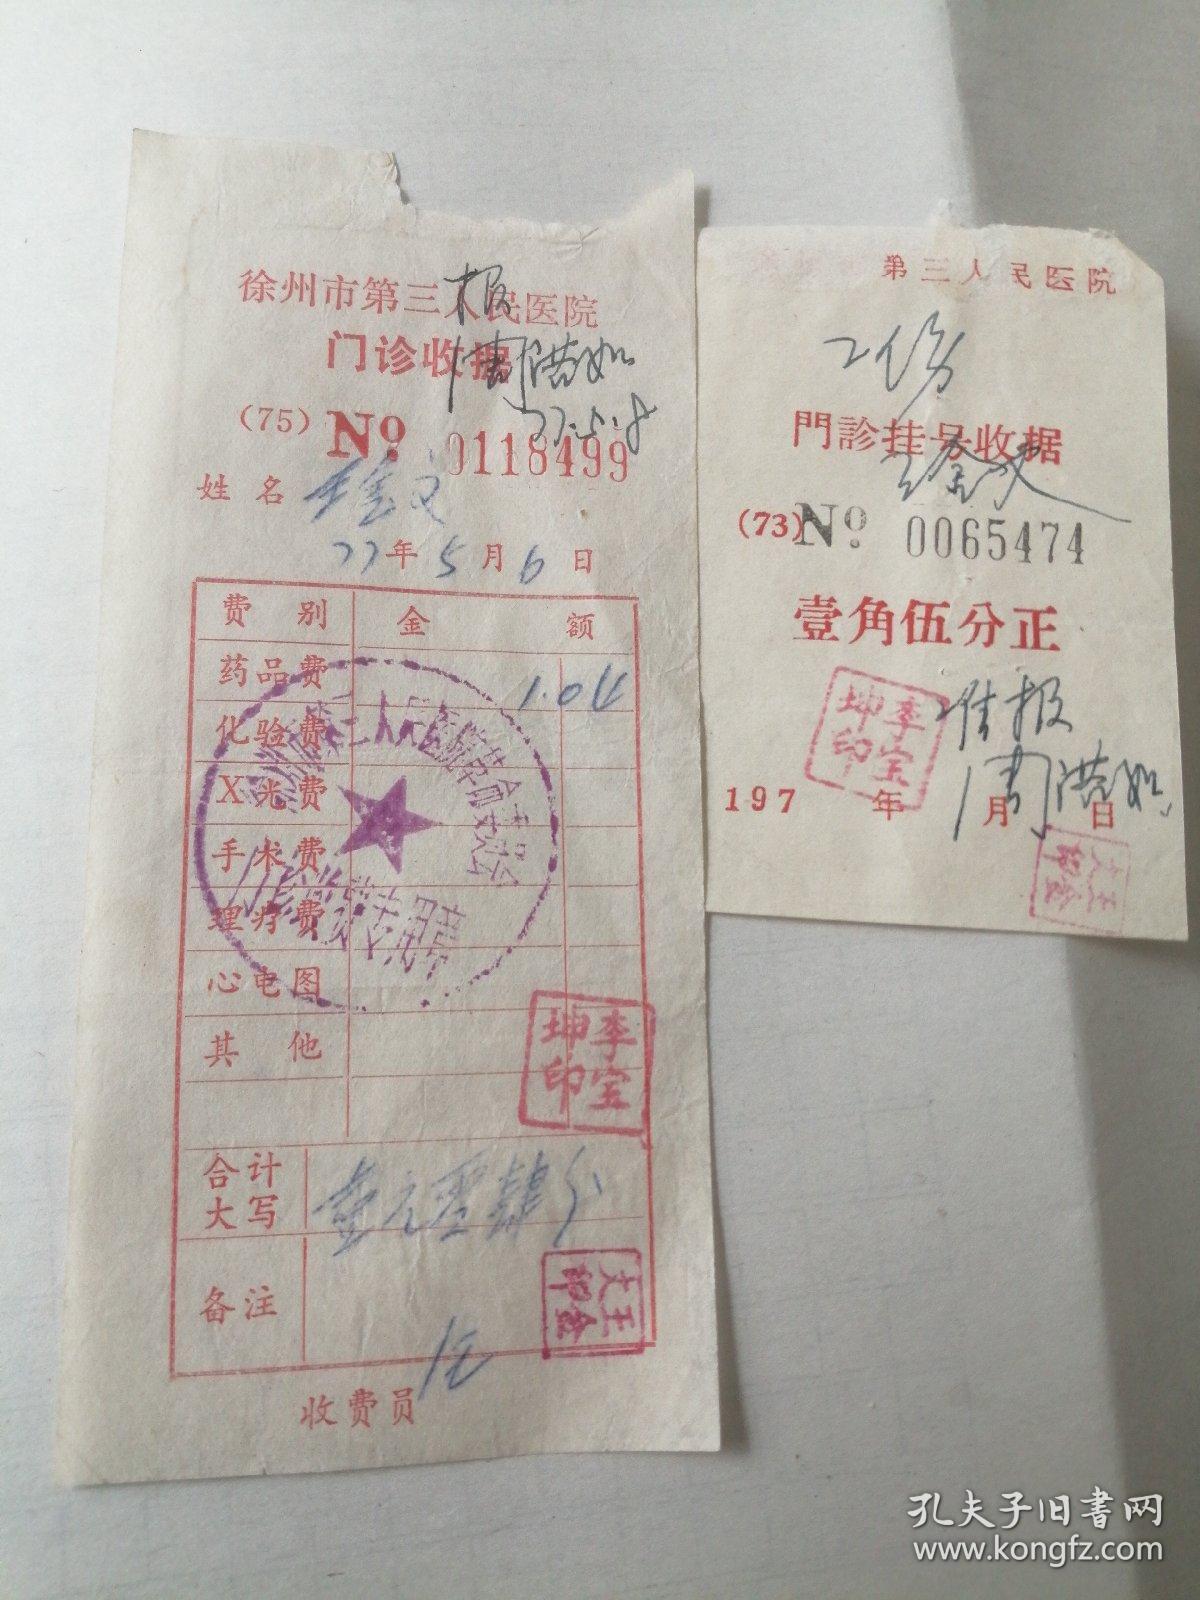 徐州市第三人民医院
门诊收据
报
周洪如
77.5.8
(75) No 0118499
姓名 王金文
77年5月6日
费别 金额
药品费 1.04
化验费
X光费
手术费
理疗费
心电图
其他
李宝坤印
合计大写 壹元零肆分
备注
王金文印
收费员
第三人民医院
2份
門診挂号收据
王金文
(73) No 0065474
壹角伍分正
李宝坤印
准报
周洪如
197 年 月 日
王金文印
孔夫子旧书网
www.kongfz.com